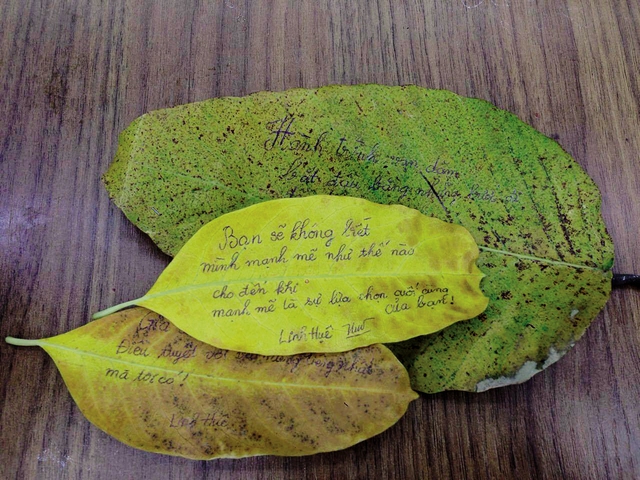 Hành trình vạn dặm
bắt đầu bằng những bước đi
Bạn sẽ không biết
mình mạnh mẽ như thế nào
cho đến khi
mạnh mẽ là sự lựa chọn cuối cùng
của bạn!
Linh Huê
Điều tuyệt vời
mà tôi có!
Linh Huê